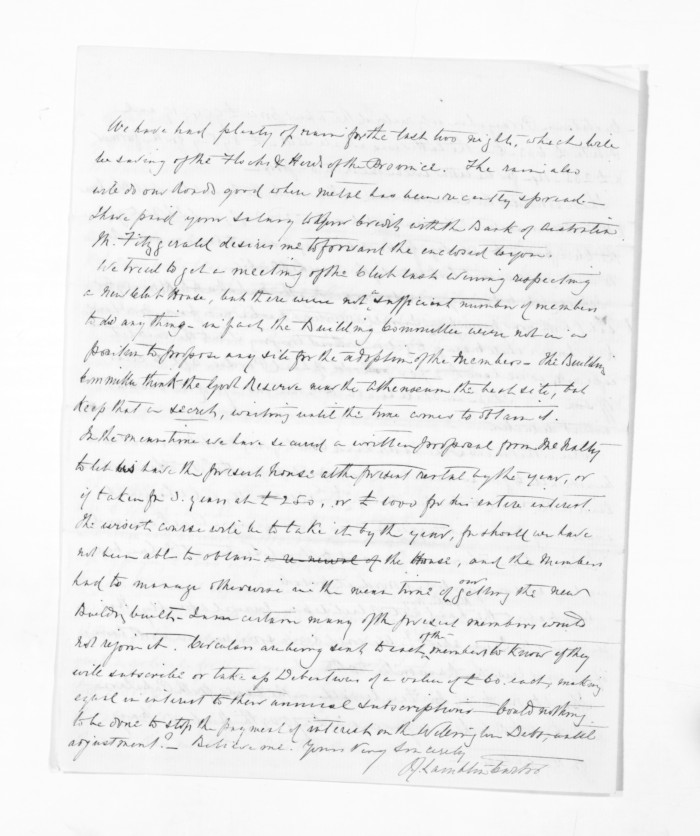 We have had plenty of rain for the last two nights, which will
be saving of the Flocks & Herds of the Province. The rain also
will do our Roads good where metal has been recently spread.—
I have paid your salary to your Credit with the Bank of Australia.
Mr. Fitzgerald desires me to forward the enclosed to you.
We tried to get a meeting of the Club last evening respecting
a New Club House, but there were not a sufficient number of members
to do any thing — in fact the Building Committee were not in a
position to propose any site for the adoption of the Members — The Building
Committee think the Govt Reserve near the Athenaeum the best site, but
keep that a secret, waiting until the time comes to obtain it.
In the meantime we have secured a written proposal from McNally
to let us have the present house at the present rental by the year, or
if taken for 3 years at £250, or £1000 for his entire interest.
The wisest course will be to take it by the year, for should we have
not been able to obtain a renewal of the House, and the Members
had to manage otherwise in the mean time of our getting the new
Building built — I am certain many of the present members would
not rejoin it. Circulars are being sent to each of the members to know if they
will subscribe or take up Debentures of a value of £60, each, making
equal in interest to their annual subscriptions — Could nothing
be done to stop the payment of interest on the Wellington Debt, until
adjustment? — Believe me. Yours Very Sincerely